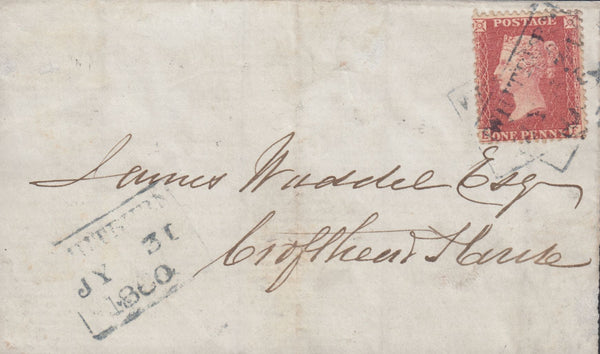 POSTAGE
ONE PENNY
James Waddel Esq
Crofthead House
HITBURN
JY 31
1860